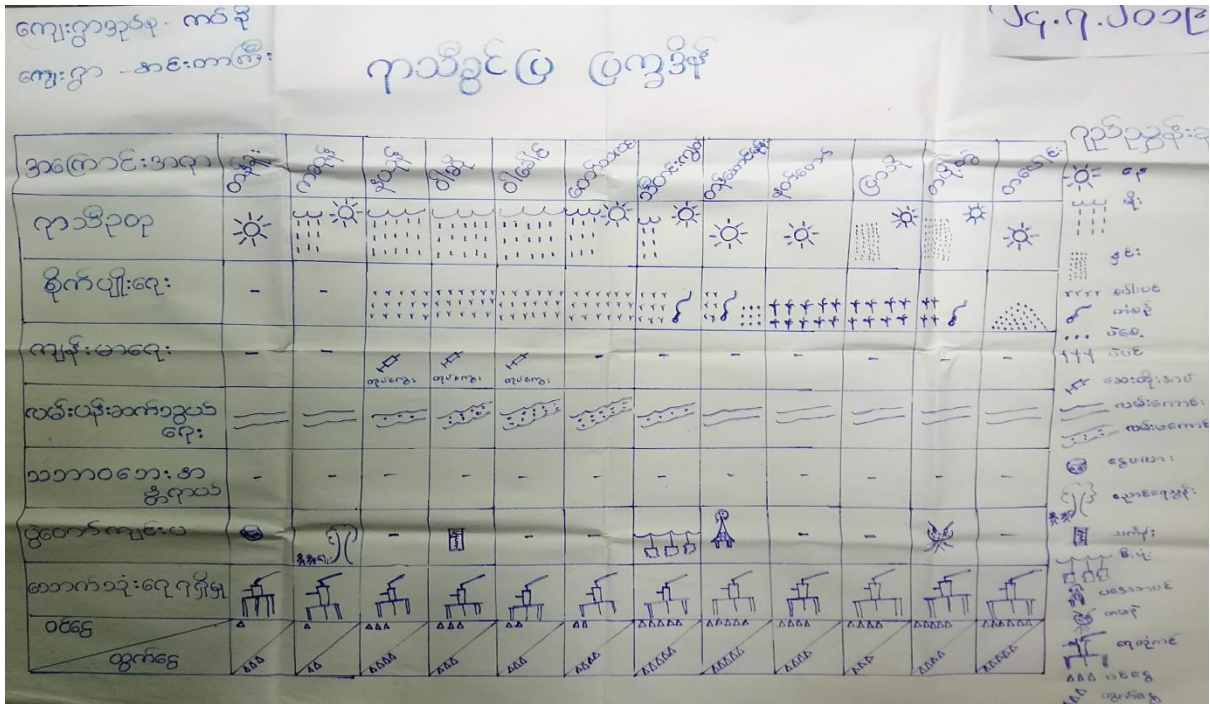 ကျေးရွာအုပ်စု - ကပ်နီ
၂၄.၇.၂၀၁၉
ကျေးရွာ - အင်းတာကြီး
ရာသီခွင်ပြ ပြက္ခဒိန်
ရည်ညွှန်းချ
အကြောင်းအရာ တန်ခူး ကဆုန် နယုန် ဝါဆို ဝါခေါင် တော်သလင်း သီတင်းကျွတ် တန်ဆောင်မုန်း နတ်တော် ပြာသို တပို့တွဲ တပေါင်း
ရာသီဥတု
စိုက်ပျိုးရေး - -
ကျန်းမာရေး - - တုပ်ကွေး တုပ်ကွေး တုပ်ကွေး - - - - - - -
လမ်းပန်းဆက်သွယ်
ရေး
သဘာဝဘေးအ
န္တရာယ် - - - - - - - - - - - -
ပွဲတော်ကျင်းပ - - - - - -
သောက်သုံးရေရရှိမှု
ဝင်ငွေ
ထွက်ငွေ
နေ
မိုး
နှင်း
စပါးပင်
တံစဉ်
ပဲစေ့
ပဲပင်
ဆေးထိုးအပ်
လမ်းကောင်း
လမ်းမကောင်း
ငွေဖလား
ညောင်ရေသွန်း
သင်္ကန်း
မီးပုံး
ပဒေသာပင်
ထမနဲ
ရေတုံကင်
ဝင်ငွေ
ထွက်ငွေ